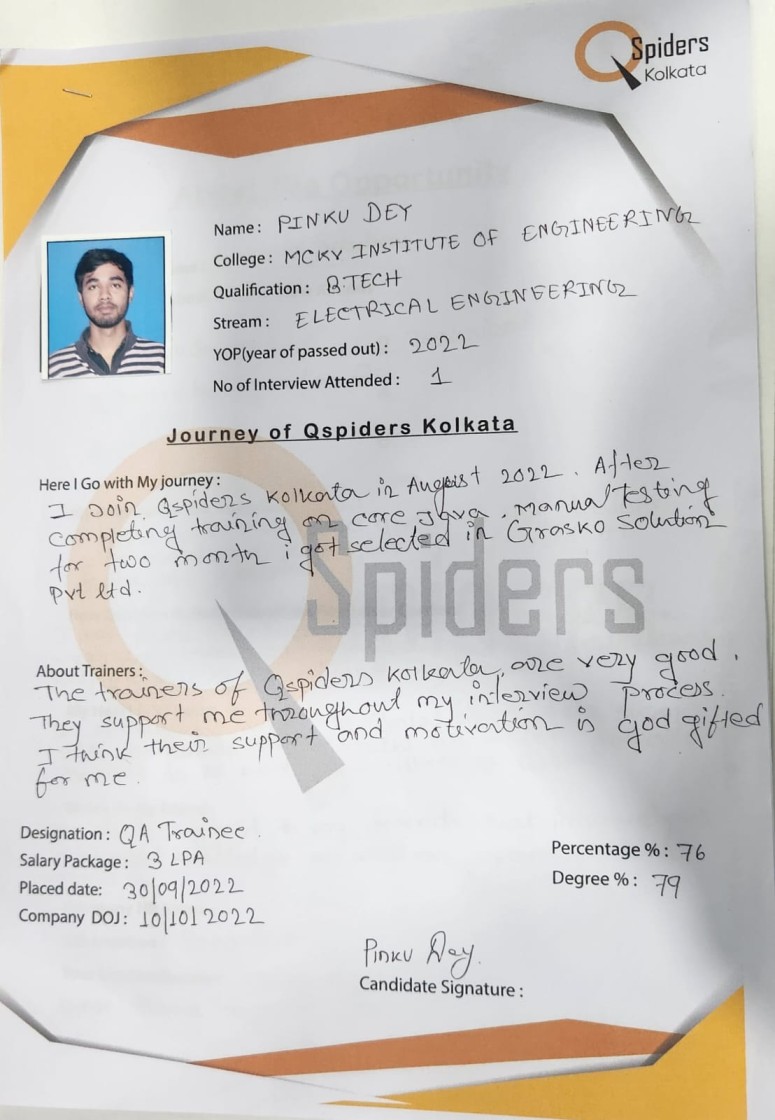 QSpiders
Kolkata
Name: PINKU DEY
College: MCKV INSTITUTE OF ENGINEERING
Qualification: B.TECH
Stream: ELECTRICAL ENGINEERING
YOP(year of passed out): 2022
No of Interview Attended: 1
Journey of Qspiders Kolkata
Here I Go with My journey:
I Join Qspiders Kolkata in August 2022. After
completing training on core Java, Manual Testing
for two month i got selected in Grasko Solution
pvt ltd.
QSpiders
About Trainers:
The trainers of Qspiders Kolkata are very good.
They support me throughout my interview process.
I think their support and motivation is god gifted
for me.
Designation: QA Trainee.
Salary Package: 3 LPA
Placed date: 30/09/2022
Company DOJ: 10/10/2022
Percentage %: 76
Degree %: 79
Pinku Dey.
Candidate Signature: